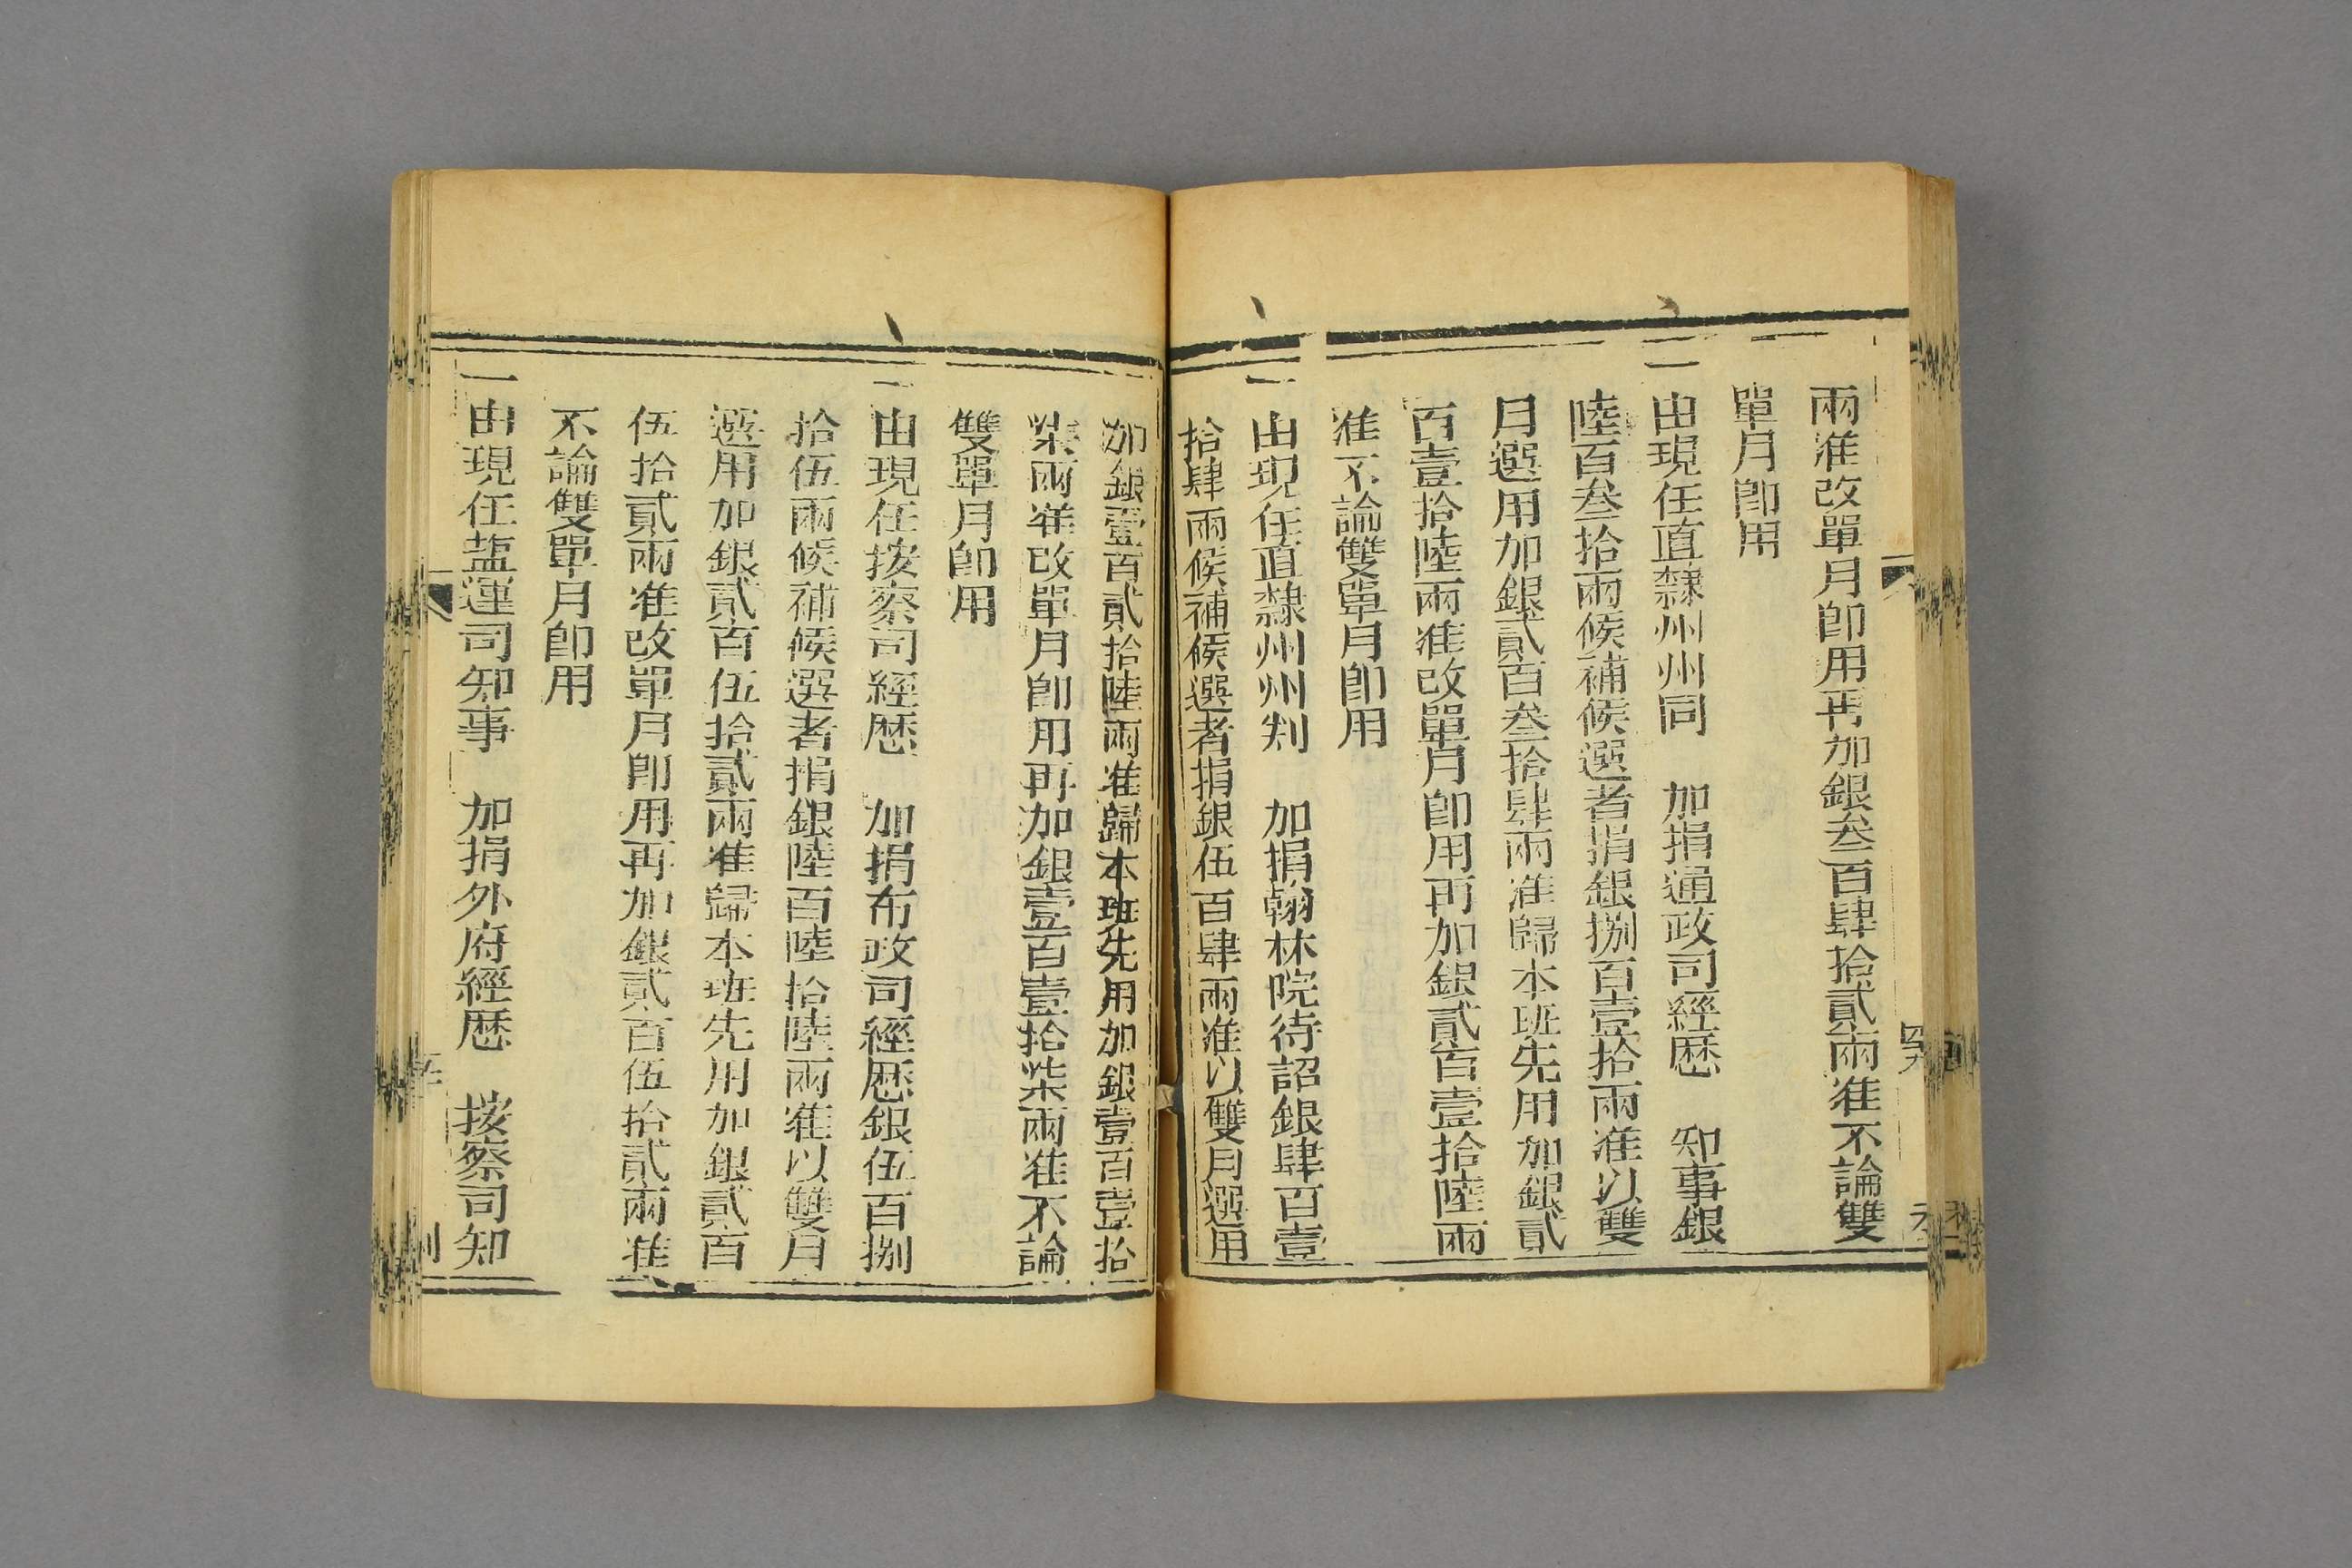 兩准改單月卽用再加銀叁百肆拾貳兩准不論雙
單月卽用
一由現任直隸州州同　加捐通政司經歷　知事銀
陸百叁拾兩候補候選者捐銀捌百壹拾兩准以雙
月選用加銀貳百叁拾肆兩准歸本班先用加銀貳
百壹拾陸兩准改單月卽用再加銀貳百壹拾陸兩
准不論雙單月卽用
一由現任直隸州州判　加捐翰林院待詔銀肆百壹
拾肆兩候補候選者捐銀伍百肆兩准以雙月選用
加銀壹百貳拾陸兩准歸本班先用加銀壹百壹拾
柒兩准改單月卽用再加銀壹百壹拾柒兩准不論
雙單月卽用
一由現任按察司經歷　加捐布政司經歷銀伍百捌
拾伍兩候補候選者捐銀陸百陸拾陸兩准以雙月
選用加銀貳百伍拾貳兩准歸本班先用加銀貳百
伍拾貳兩准改單月卽用再加銀貳百伍拾貳兩准
不論雙單月卽用
一由現任塩運司知事　加捐外府經歷　按察司知